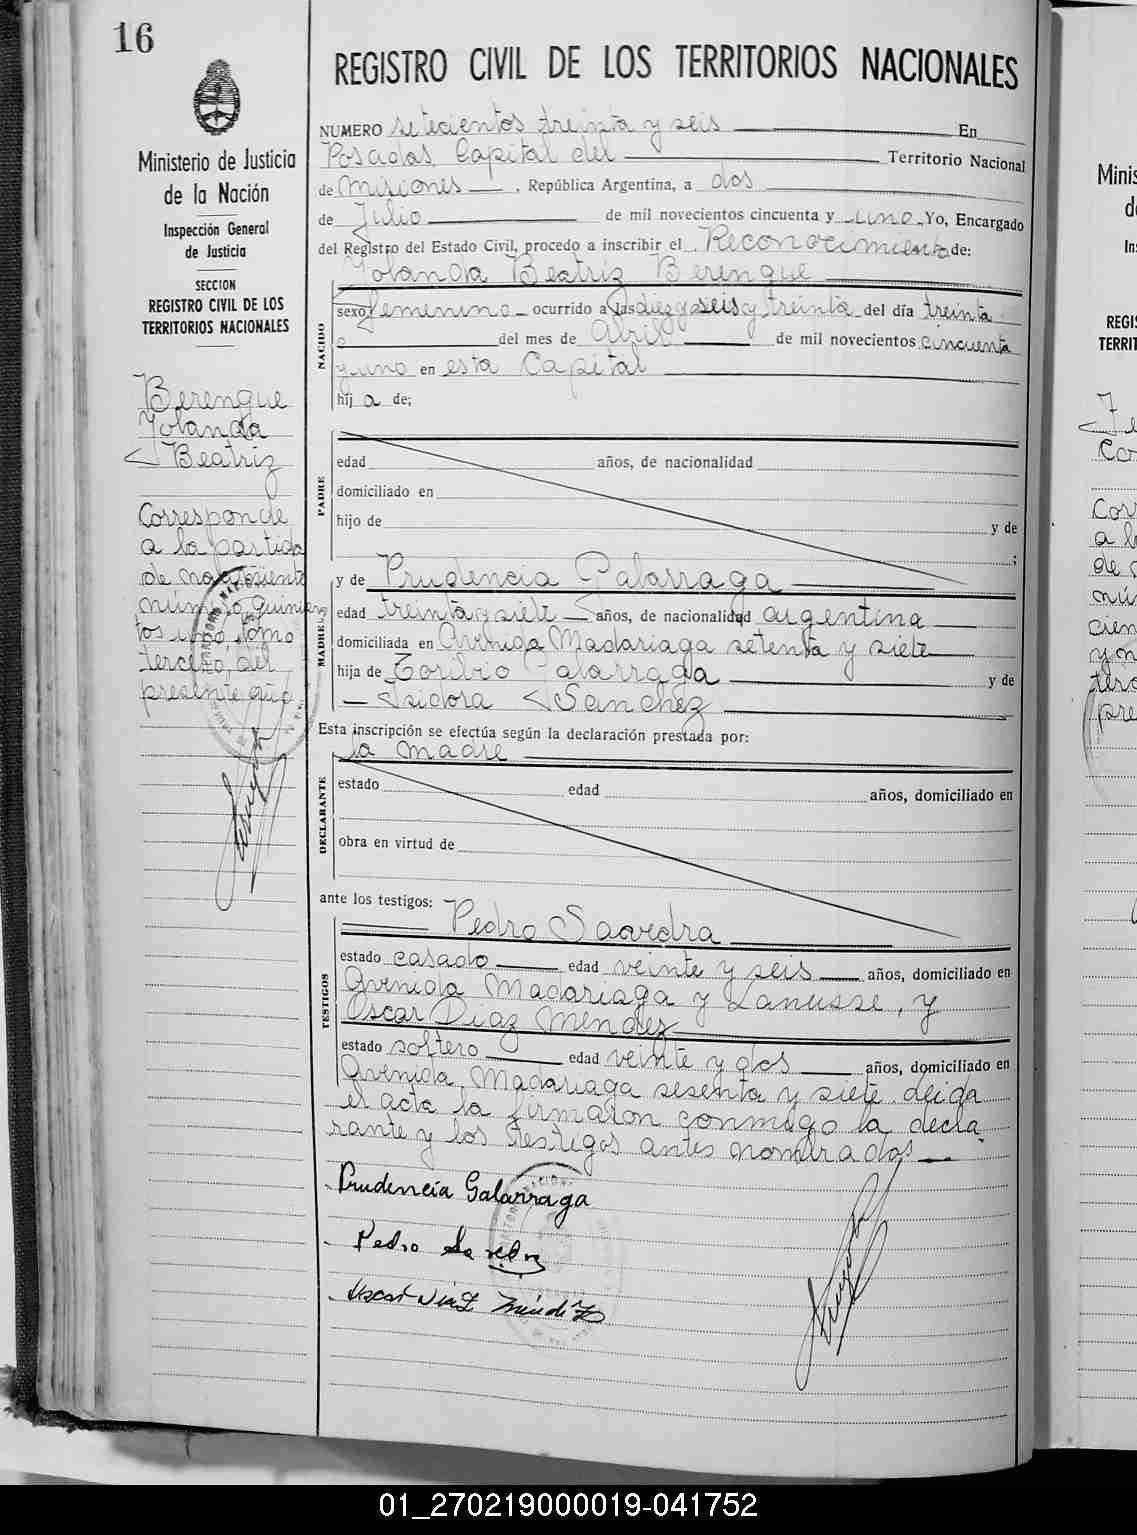 16
Ministerio de Justicia
de la Nación
Inspección General
de Justicia
SECCION
REGISTRO CIVIL DE LOS
TERRITORIOS NACIONALES
Berengue
Yolanda
Beatriz
Corresponde
a la partida
de nacimiento
número quinien
tos uno, tomo
tercero, del
presente año
REGISTRO CIVIL DE LOS TERRITORIOS NACIONALES
NUMERO setecientos treinta y seis En
Posadas, Capital del Territorio Nacional
de Misiones, República Argentina, a dos
de Julio de mil novecientos cincuenta y uno. Yo, Encargado
del Registro del Estado Civil, procedo a inscribir el Reconocimiento de:
Yolanda Beatriz Berengue
NACIDO
sexo femenino ocurrido a las diez y seis y treinta del día treinta
del mes de Abril de mil novecientos cincuenta
y uno en esta Capital
hij a de;
PADRE
edad años, de nacionalidad
domiciliado en
hijo de y de
;
y de Prudencia Galarraga
MADRE
edad treinta y siete años, de nacionalidad argentina
domiciliada en Avenida Madariaga setenta y siete
hija de Toribio Galarraga y de
Isidora Sanchez
Esta inscripción se efectúa según la declaración prestada por:
la madre
DECLARANTE
estado edad años, domiciliado en
obra en virtud de
ante los testigos: Pedro Saavedra
TESTIGOS
estado casado edad veinte y seis años, domiciliado en
Avenida Madariaga y Lanusse, y
Oscar Diaz Mendez
estado soltero edad veinte y dos años, domiciliado en
Avenida Madariaga sesenta y siete. Leida
el acta la firmaron conmigo la decla
rante y los testigos antes nombrados
Prudencia Galarraga
Pedro Saavedra
Oscar Diaz Méndez
01_270219000019-041752